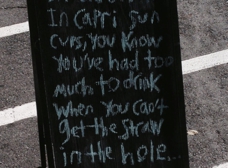 In Capri Sun
cups, you know
you've had too
much to drink
when you can't
get the straw
in the hole...